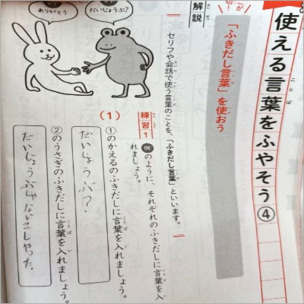 使える言葉をふやそう④
解説
「ふきだし言葉」を使おう
セリフや会話で使う言葉のことを、「ふきだし言葉」といいます。
ありがとう
だいじょうぶ?
練習1
例のように、それぞれのふきだしに言葉を入
れましょう。
(1)
①のかえるのふきだしに言葉を入れましょう。
だいじょうぶ?
②のうさぎのふきだしに言葉を入れましょう。
だいじょうぶじゃ